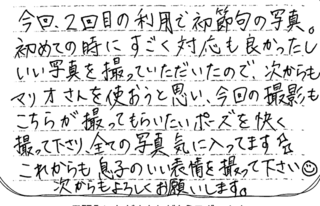 今回、2回目の利用で初節句の写真。
初めての時にすごく対応も良かったし
いい写真を撮っていただいたので、次からも
マリオさんを使おうと思い、今回の撮影も
こちらが撮ってもらいたいポーズを快く
撮って下さり、全ての写真気に入ってます
これからも息子のいい表情を撮って下さい☺
次からもよろしくお願いします。